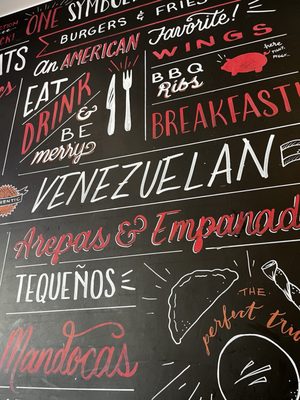 ONE SYMBOL
BURGERS & FRIES
An AMERICAN
Favorite!
WINGS
EAT
DRINK
&
BE
merry
BBQ
Ribs
BREAKFAST
VENEZUELAN
Arepas & Empanad
TEQUEÑOS
THE
perfect trio
Mandocas